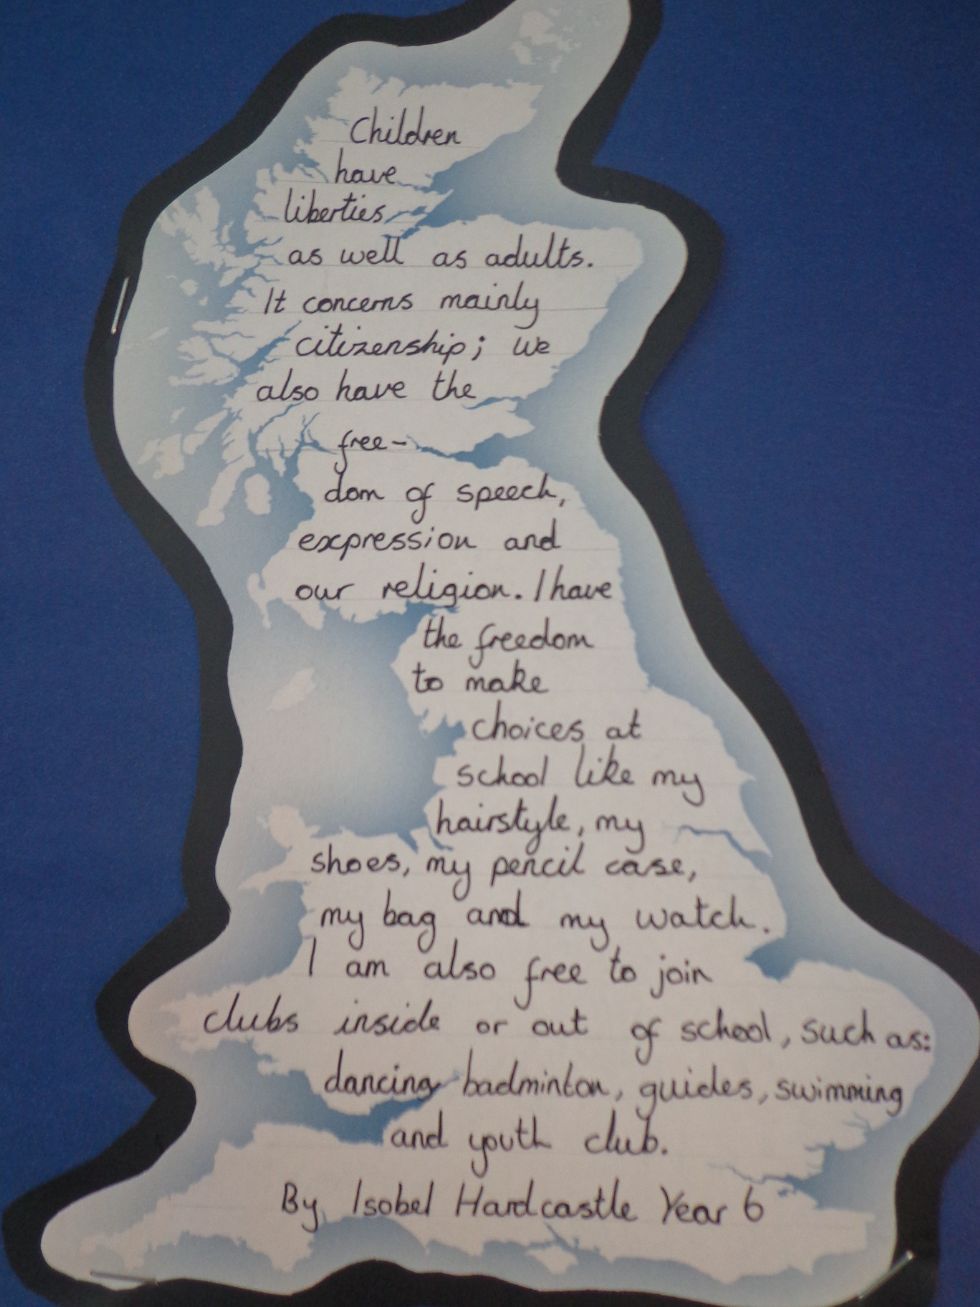 Children
have
liberties
as well as adults.
It concerns mainly
citizenship; we
also have the
free-
dom of speech,
expression and
our religion. I have
the freedom
to make
choices at
school like my
hairstyle, my
shoes, my pencil case,
my bag and my watch.
I am also free to join
clubs inside or out of school, such as:
dancing badminton, guides, swimming
and youth club.
By Isobel Hardcastle Year 6